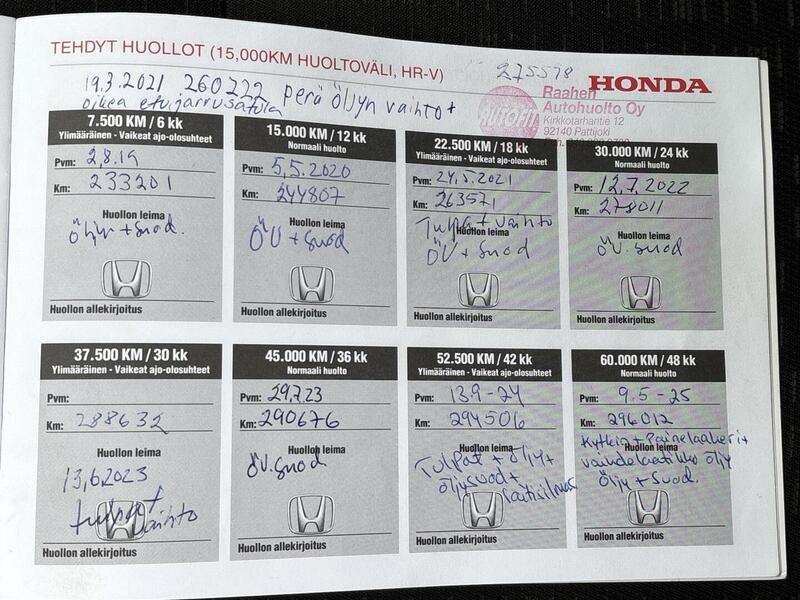 TEHDYT HUOLLOT (15,000KM HUOLTOVÄLI, HR-V)
275578
HONDA
19.3.2021 260722 perä öljyn vaihto +
oikea etujarrusatula
AUTOFIT
Raahen
Autohuolto Oy
Kirkkotarhantie 12
92140 Pattijoki
7.500 KM / 6 kk
Ylimääräinen - Vaikeat ajo-olosuhteet
Pvm: 2,8.19
Km: 233201
Huollon leima
Öljyn + Suod.
Huollon allekirjoitus
15.000 KM / 12 kk
Normaali huolto
Pvm: 5,5.2020
Km: 244807
Huollon leima
ÖV + Suod
Huollon allekirjoitus
22.500 KM / 18 kk
Ylimääräinen - Vaikeat ajo-olosuhteet
Pvm: 24,5.2021
Km: 263571
Huollon leima
Tulpat + vaihto
ÖV + Suod
Huollon allekirjoitus
30.000 KM / 24 kk
Normaali huolto
Pvm: 12,7,2022
Km: 278011
Huollon leima
ÖV. suod
Huollon allekirjoitus
37.500 KM / 30 kk
Ylimääräinen - Vaikeat ajo-olosuhteet
Pvm:
Km: 288632
Huollon leima
13,6,2023
tulpat
vaihto
Huollon allekirjoitus
45.000 KM / 36 kk
Normaali huolto
Pvm: 29,7.23
Km: 290676
Huollon leima
ÖV. suod
Huollon allekirjoitus
52.500 KM / 42 kk
Ylimääräinen - Vaikeat ajo-olosuhteet
Pvm: 13.9-24
Km: 294506
Huollon leima
Tulpat + öljy +
öljysuod +
Huollon allekirjoitus
60.000 KM / 48 kk
Normaali huolto
Pvm: 9.5-25
Km: 296012
Kytkin + Painelaakeri +
Huollon leima
vaihdelaatikko öljy
Öljy + Suod.
Huollon allekirjoitus